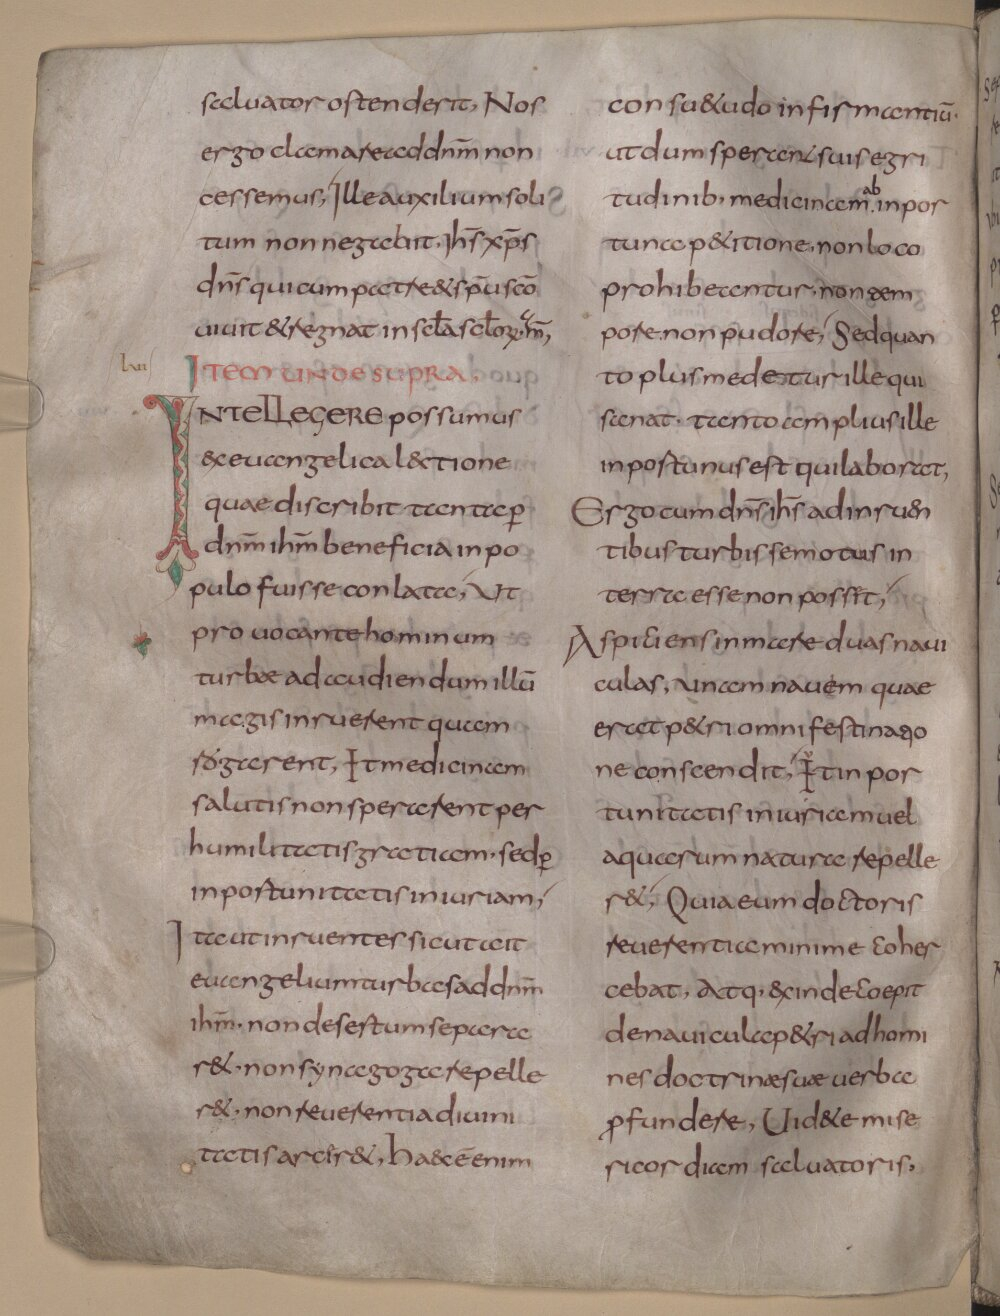 saluator ostenderit, Nos
ergo clamare ad dn̄m non
cessemus, Ille auxilium soli
tum non negabit. Ih̄s xp̄s
dn̄s qui cum patre & sp̄u sc̄o
uiuit & regnat in sc̄la sc̄lorꝝ. am̄,
lvii
ITEM UNDE SUPRA.
INTELLEGERE possumus
& euangelica l&tione
quae discribit tanta ꝑ
dn̄m ih̄m beneficia in po
pulo fuisse conlata, Ut
pro uocante hominum
turbae ad audiendum illū
magis inruerent quam
rogarent, Et medicinam
salutis non sperarent per
humilitatis gratiam. sed ꝑ
inportunitatis iniuriam,
Ita ut inruentes sicut ait
euangelium turbas ad dn̄m
ih̄m. non desertum separa
r&. non synagoga repelle
r&. non reuerentia diuini
tatis arcir&, haec ē enim
consu&udo infirmantiū.
ut dum sperant suis egri
tudinib. medicinam. ab inpor
tuna p&itione. non loco
prohibeantur. non tem
pore. non pudore, Sed quan
to plus medetur ille qui
sanat. tanto amplius ille
inportunus est qui laborat,
Ergo cum dn̄s ih̄s ad inruen
tibus turbis semotuis in
terra esse non possit,
Aspiciens in mare duas naui
culas, unam nauem quae
erat p&ri omni festinatio
ne conscendit, Et inpor
tunitatis iniuriam uel
aquarum natura repelle
r&, Quia eum doctoris
reuerentia minime coher
cebat, Atq. exinde coepit
de nauicula p&ri ad homi
nes doctrinæ suæ uerba
ꝓfundere, Uid&e mise
ricordiam saluatoris.